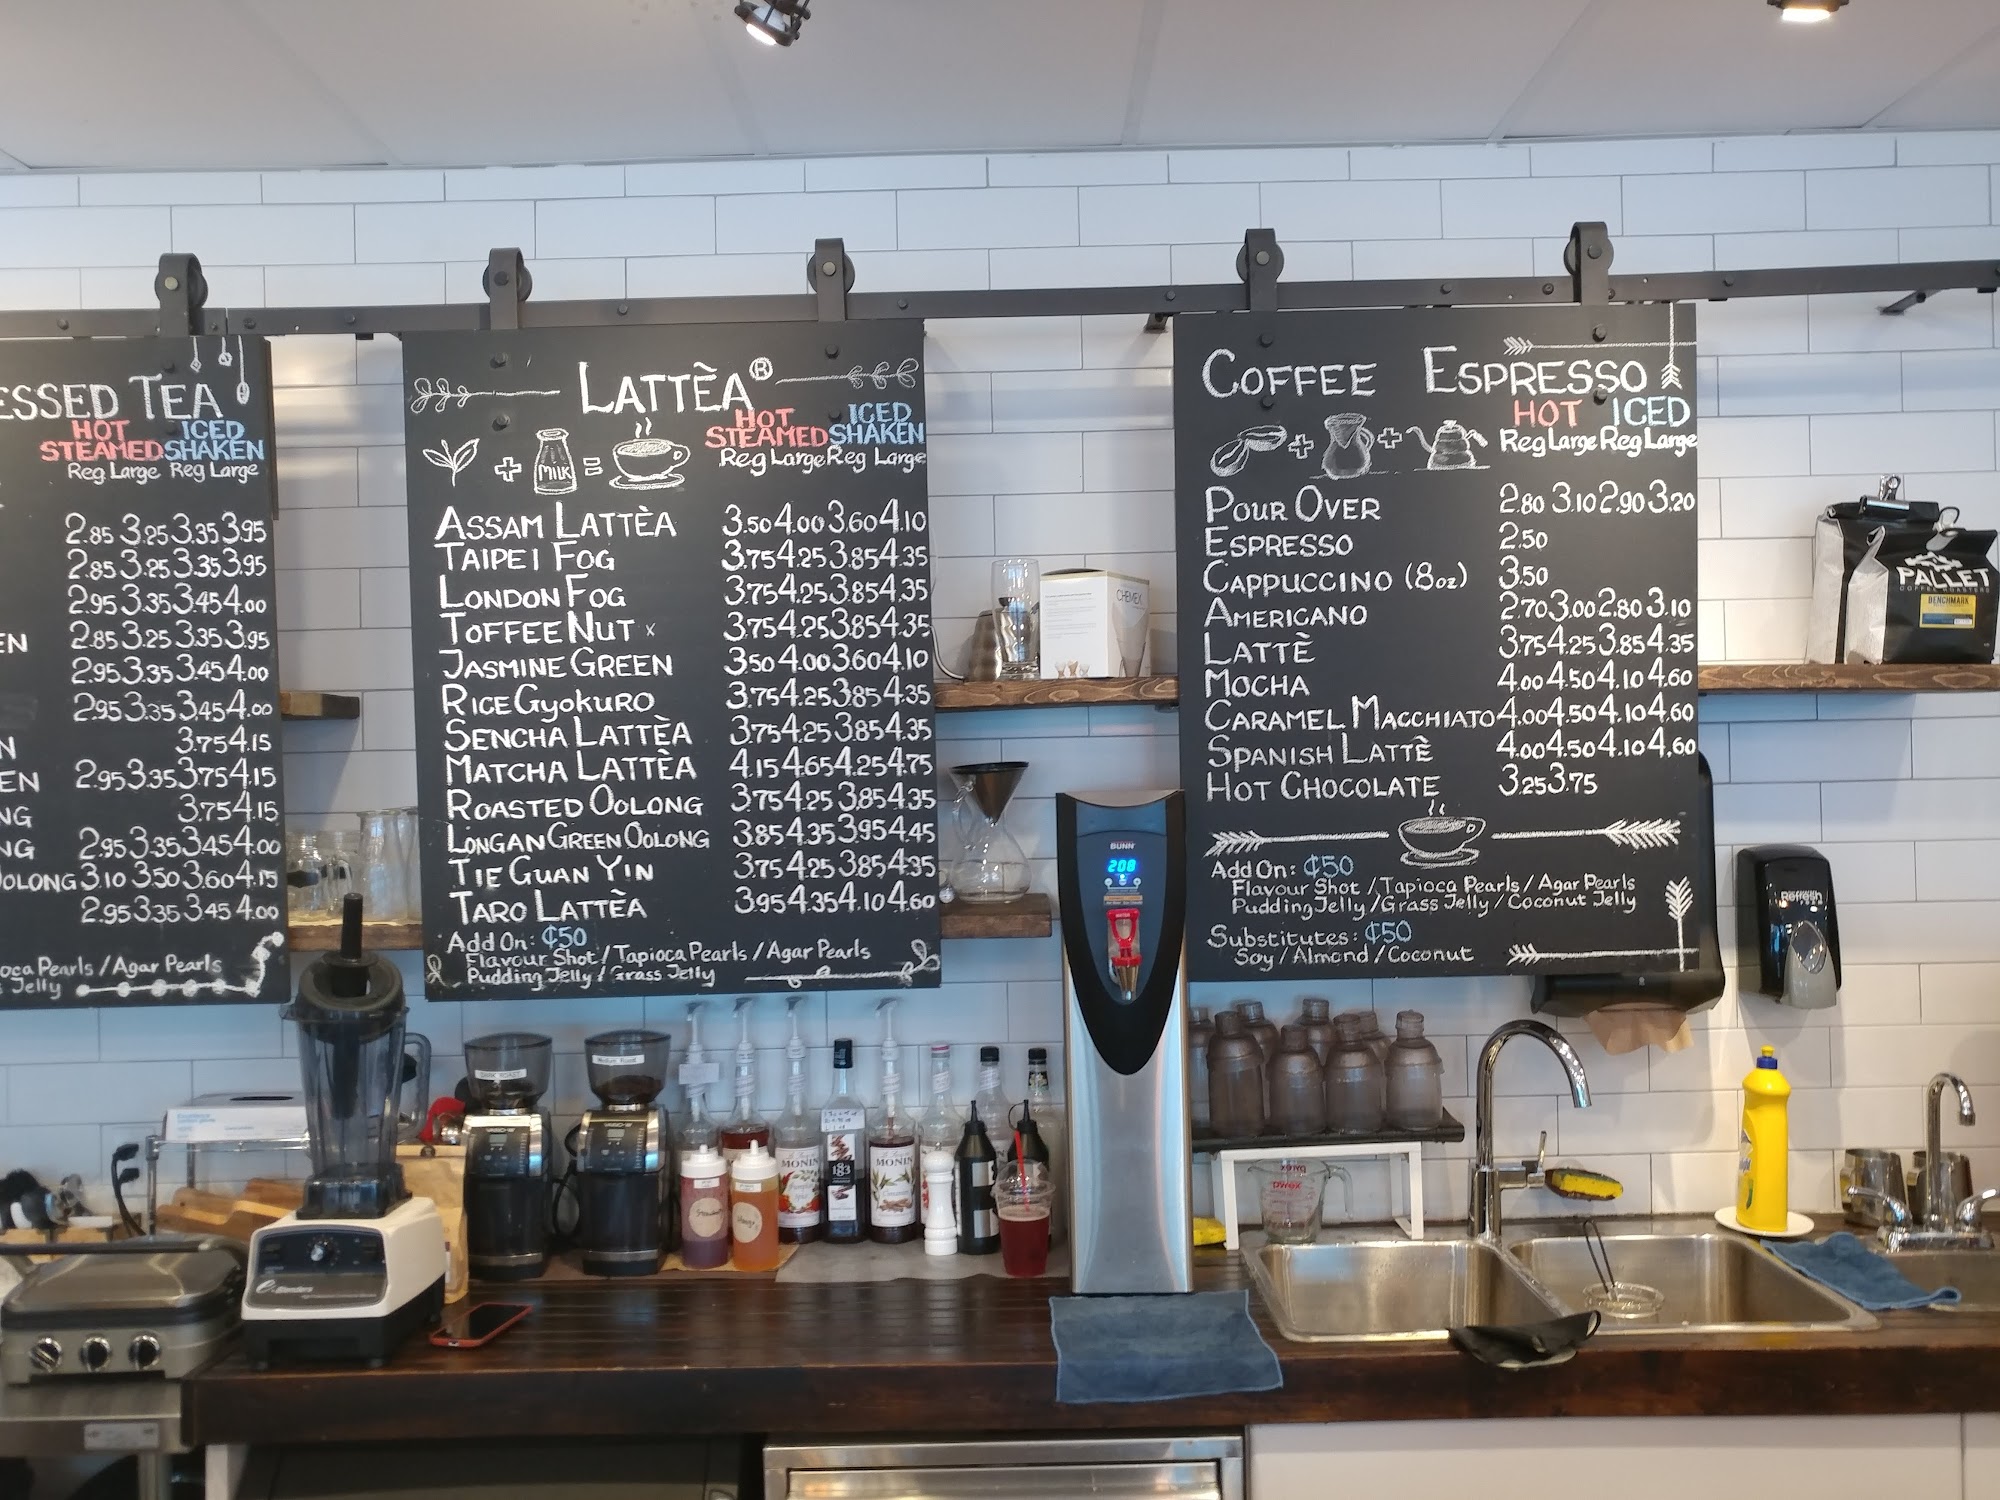 ESSED TEA
HOT STEAMED ICED SHAKEN
Reg Large Reg Large
2.85 3.25 3.35 3.95
2.85 3.25 3.35 3.95
2.95 3.35 3.45 4.00
EN 2.85 3.25 3.35 3.95
2.95 3.35 3.45 4.00
2.95 3.35 3.45 4.00
N 3.75 4.15
EN 2.95 3.35 3.75 4.15
NG 3.75 4.15
NG 2.95 3.35 3.45 4.00
OOLONG 3.10 3.50 3.60 4.15
2.95 3.35 3.45 4.00
oca Pearls / Agar Pearls
s Jelly
LATTÈA®
HOT STEAMED ICED SHAKEN
MILK
Reg Large Reg Large
ASSAM LATTÈA 3.50 4.00 3.60 4.10
TAIPEI FOG 3.75 4.25 3.85 4.35
LONDON FOG 3.75 4.25 3.85 4.35
TOFFEE NUT x 3.75 4.25 3.85 4.35
JASMINE GREEN 3.50 4.00 3.60 4.10
RICE GYOKURO 3.75 4.25 3.85 4.35
SENCHA LATTÈA 3.75 4.25 3.85 4.35
MATCHA LATTÈA 4.15 4.65 4.25 4.75
ROASTED OOLONG 3.75 4.25 3.85 4.35
LONGAN GREEN OOLONG 3.85 4.35 3.95 4.45
TIE GUAN YIN 3.75 4.25 3.85 4.35
TARO LATTÈA 3.95 4.35 4.10 4.60
Add On: ¢50
Flavour Shot / Tapioca Pearls / Agar Pearls
Pudding Jelly / Grass Jelly
COFFEE ESPRESSO
HOT ICED
Reg Large Reg Large
POUR OVER 2.80 3.10 2.90 3.20
ESPRESSO 2.50
CAPPUCCINO (8oz) 3.50
AMERICANO 2.70 3.00 2.80 3.10
LATTÈ 3.75 4.25 3.85 4.35
MOCHA 4.00 4.50 4.10 4.60
CARAMEL MACCHIATO 4.00 4.50 4.10 4.60
SPANISH LATTÈ 4.00 4.50 4.10 4.60
HOT CHOCOLATE 3.25 3.75
Add On: ¢50
Flavour Shot / Tapioca Pearls / Agar Pearls
Pudding Jelly / Grass Jelly / Coconut Jelly
Substitutes: ¢50
Soy / Almond / Coconut
CHEMEX
PALLET
COFFEE ROASTERS
BENCHMARK
BUNN
208
Refresh
DARK ROAST
Medium Roast
MONIN
1883
MONIN
PYREX